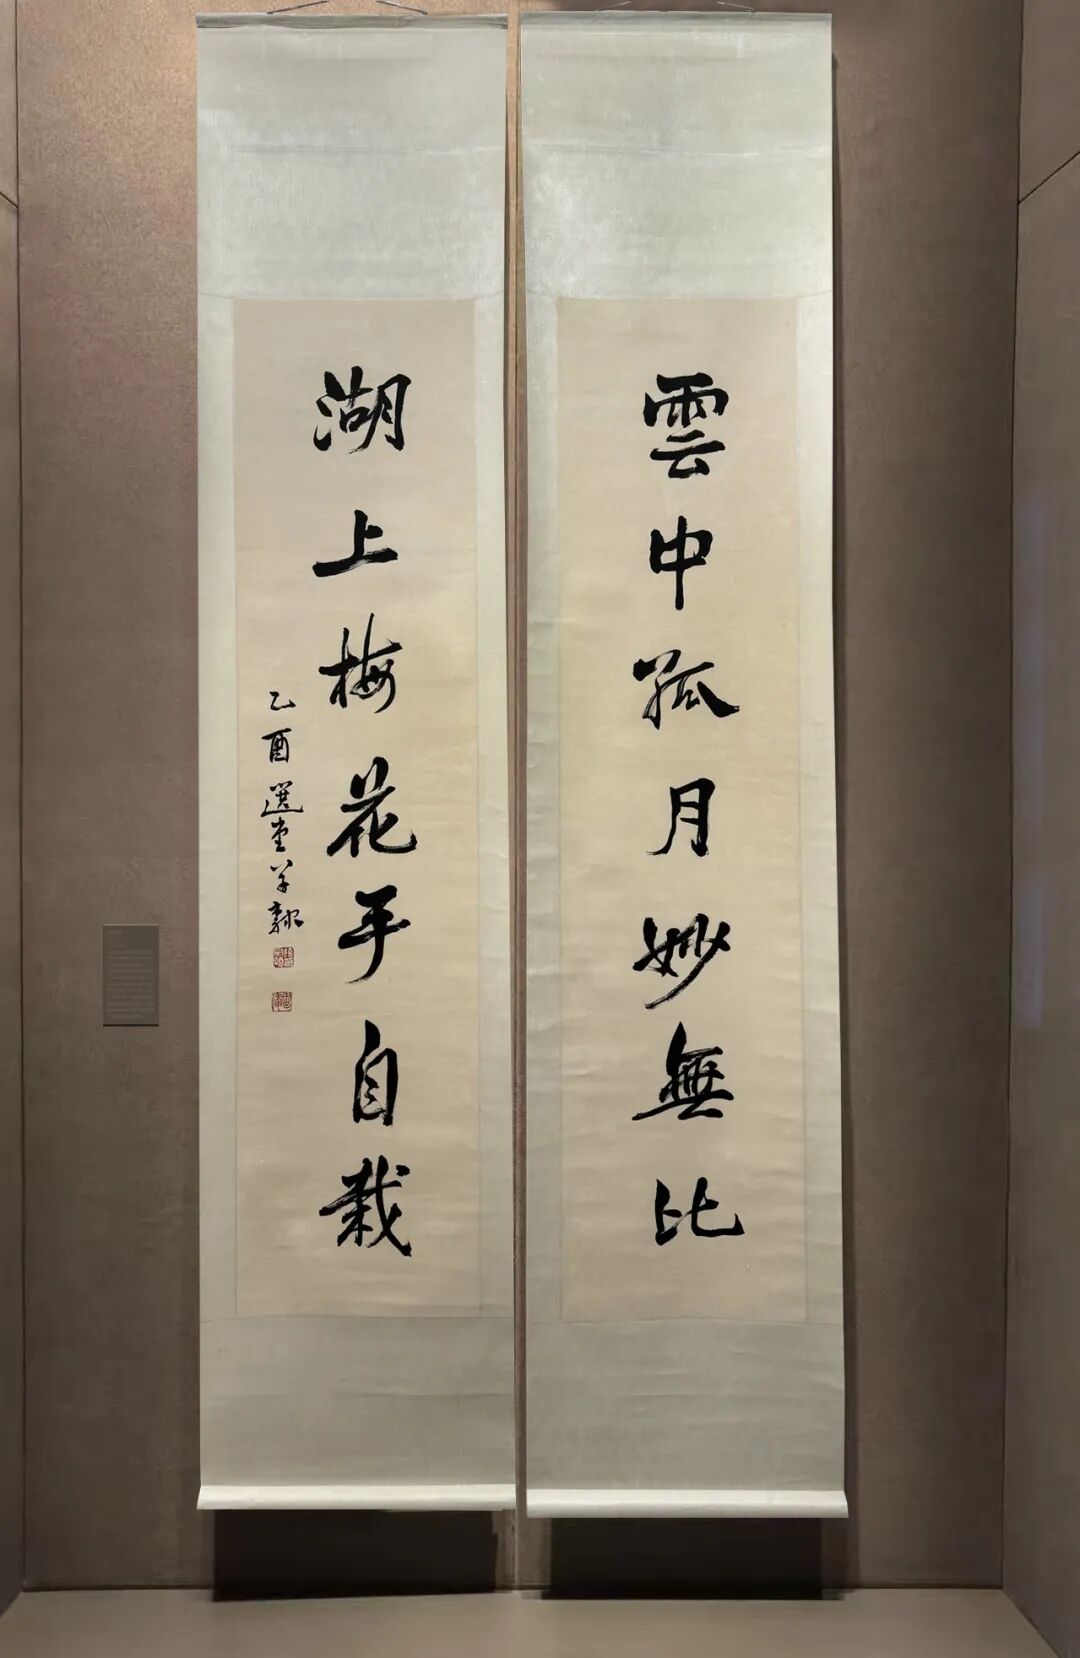 雲中孤月妙無比
湖上梅花手自栽
乙酉選堂半隸